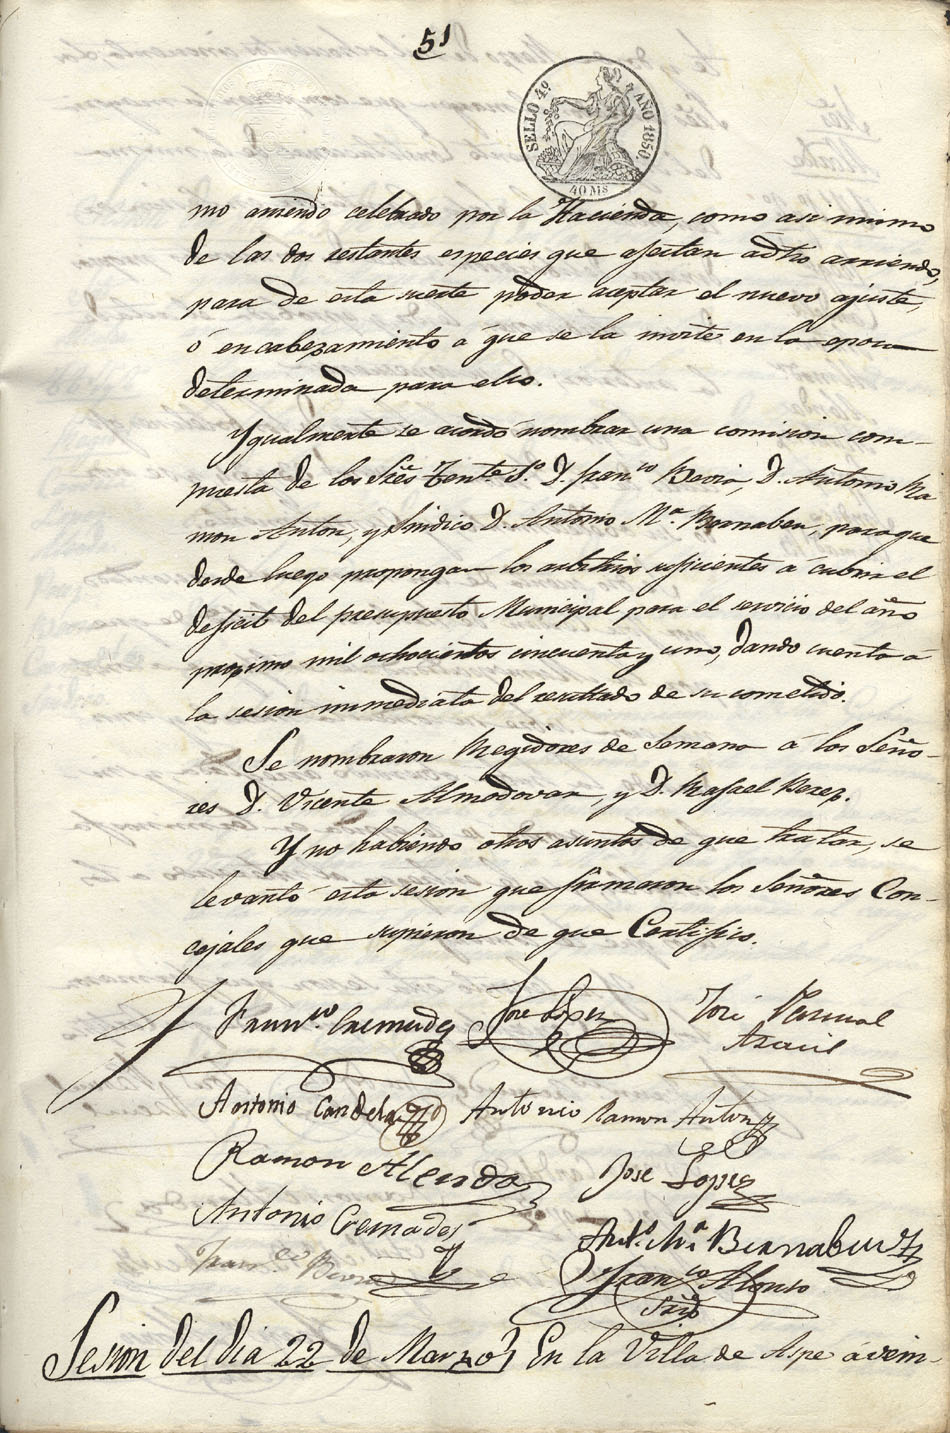 51
SELLO 4º AÑO 1850.
40 Ms
mo arriendo celebrado por la Hacienda, como asi mismo
de las dos restantes especies que afectan a dho arriendo,
para de esta suerte poder aceptar el nuevo ajuste,
ó encabezamiento á que se la invite en la epoca
determinada para ello.
Ygualmente se acordó nombrar una comision com-
puesta de los Sres Tente 1º D. Franco Bevia, D. Antonio Ra
mon Anton, y Sindico D. Antonio Mª Bernabeu, para que
desde luego propongan los arbitrios suficientes á cubrir el
deficit del presupuesto Municipal para el servicio del año
proximo mil ochocientos cincuenta y uno, dando cuenta á
la sesion inmediata del resultado de su cometido.
Se nombraron Regidores de Semana á los Seño-
res D. Vicente Almodovar, y D. Rafael Perez.
Y no habiendo otros asuntos de que tratar, se
levantó esta sesion que firmaron los Señores Con-
cejales que supieron de que Certifico.
Franco Cremades José Lopez José Pascual
Aracil
Antonio Candela Antonio Ramon Anton
Ramon Alenda José Lopez
Antonio Cremades
Anto Mª Bernabeu
Franco Bevia Franco Alonso
Srio
Sesion del dia 22 de Marzo En la Villa de Aspe á vein-